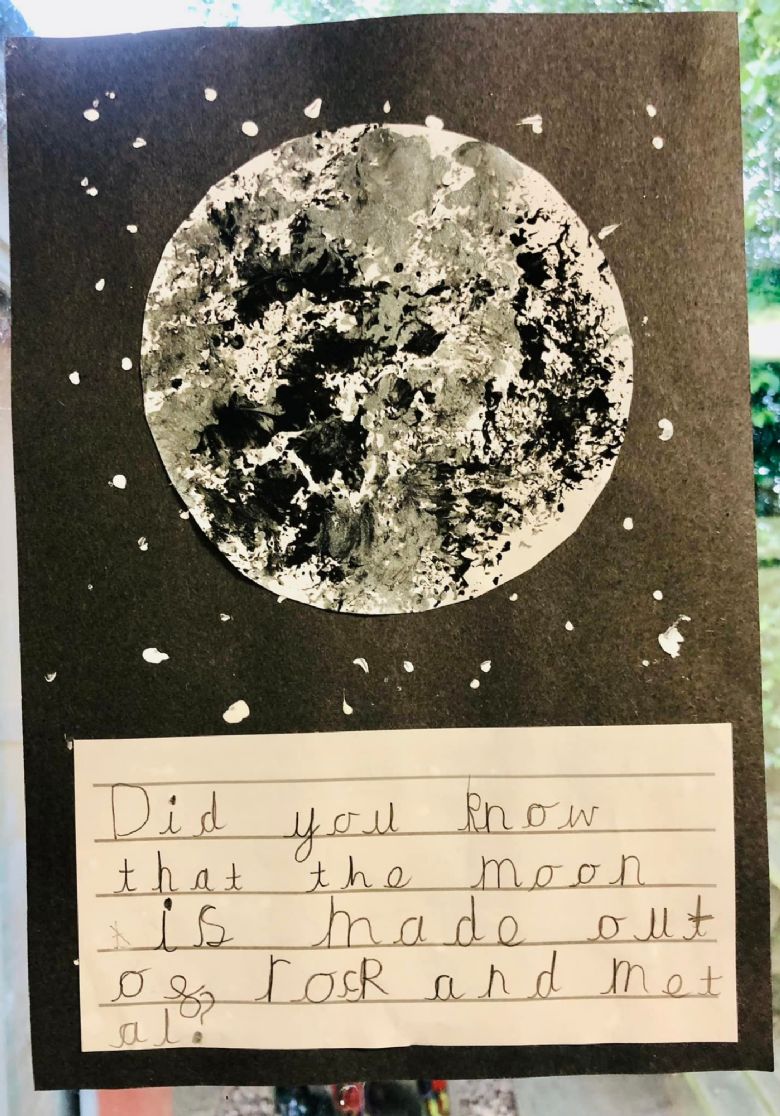 Did you know
that the moon
is made out
of rock and met
al?